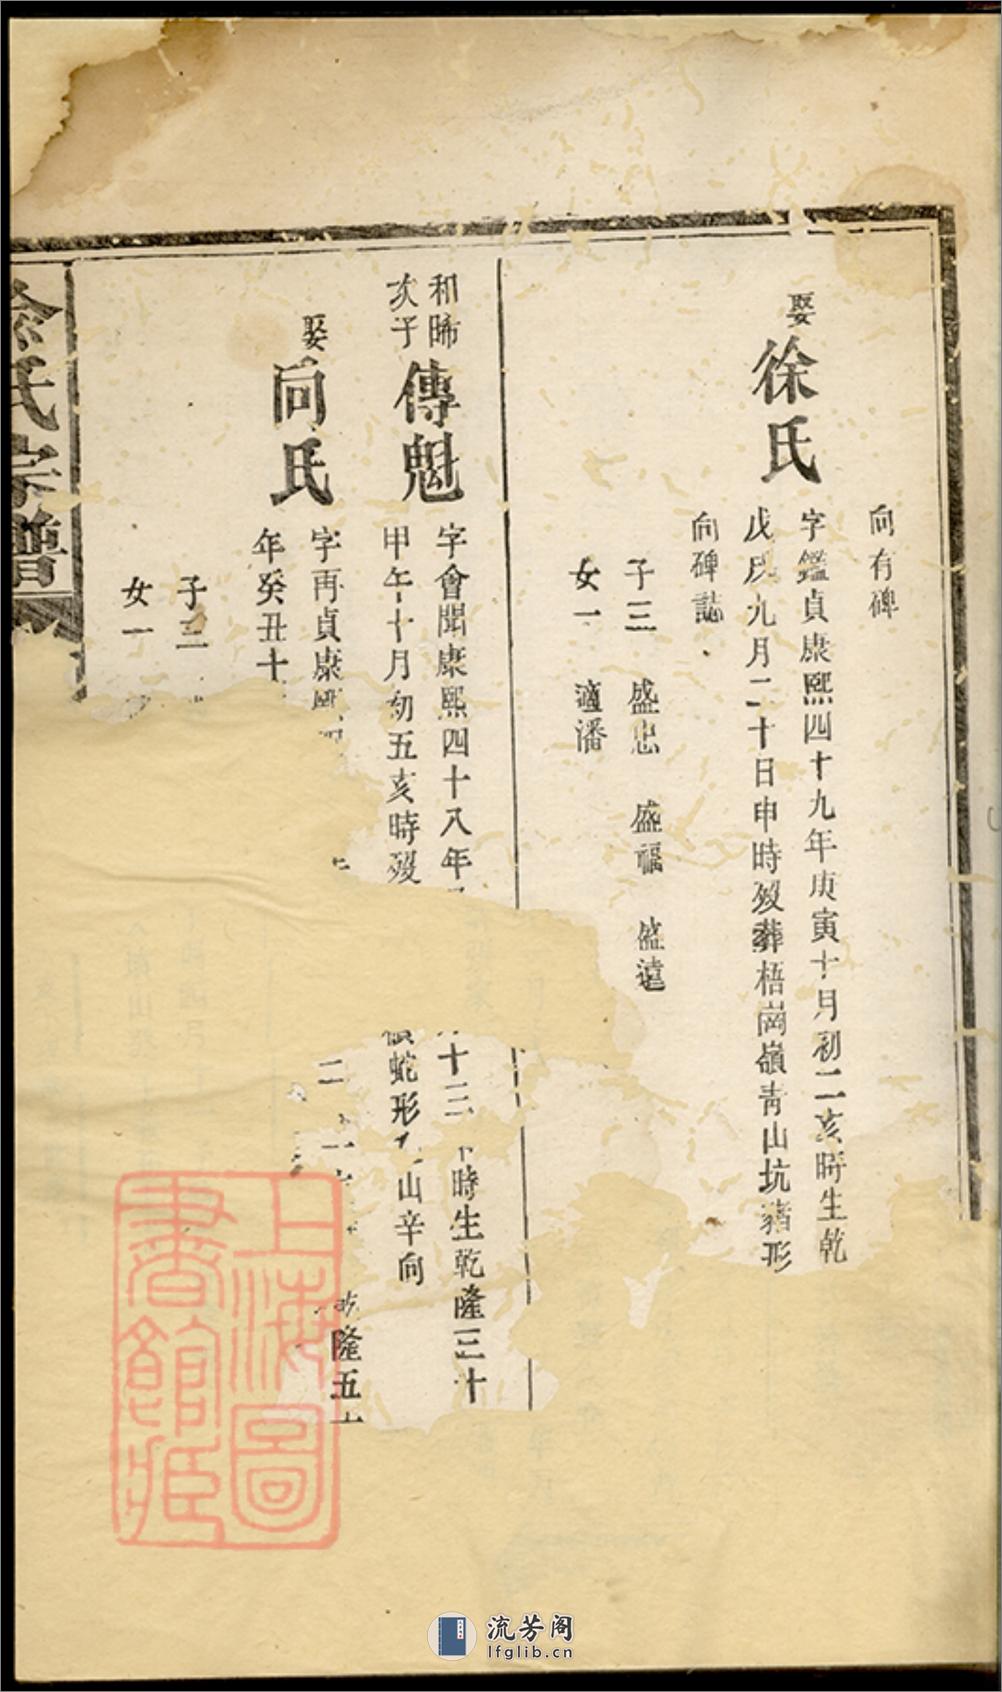 向有碑
娶
徐氏
字鑑貞康熙四十九年庚寅十月初二亥時生乾
戊戌九月二十日申時歿葬梧崗嶺青山坑豬形
向碑誌
子三 盛忠 盛福 盛遠
女一 適潘
和晞
次子
傳魁
字會聞康熙四十八年
十三 時生乾隆三十
甲午十月初五亥時歿
蛇形 山辛向
娶
向氏
字再貞康熙
二
隆五十
年癸丑十
子三
女一
氏宗譜
上海圖
書館藏
流芳阁
lfglib.cn